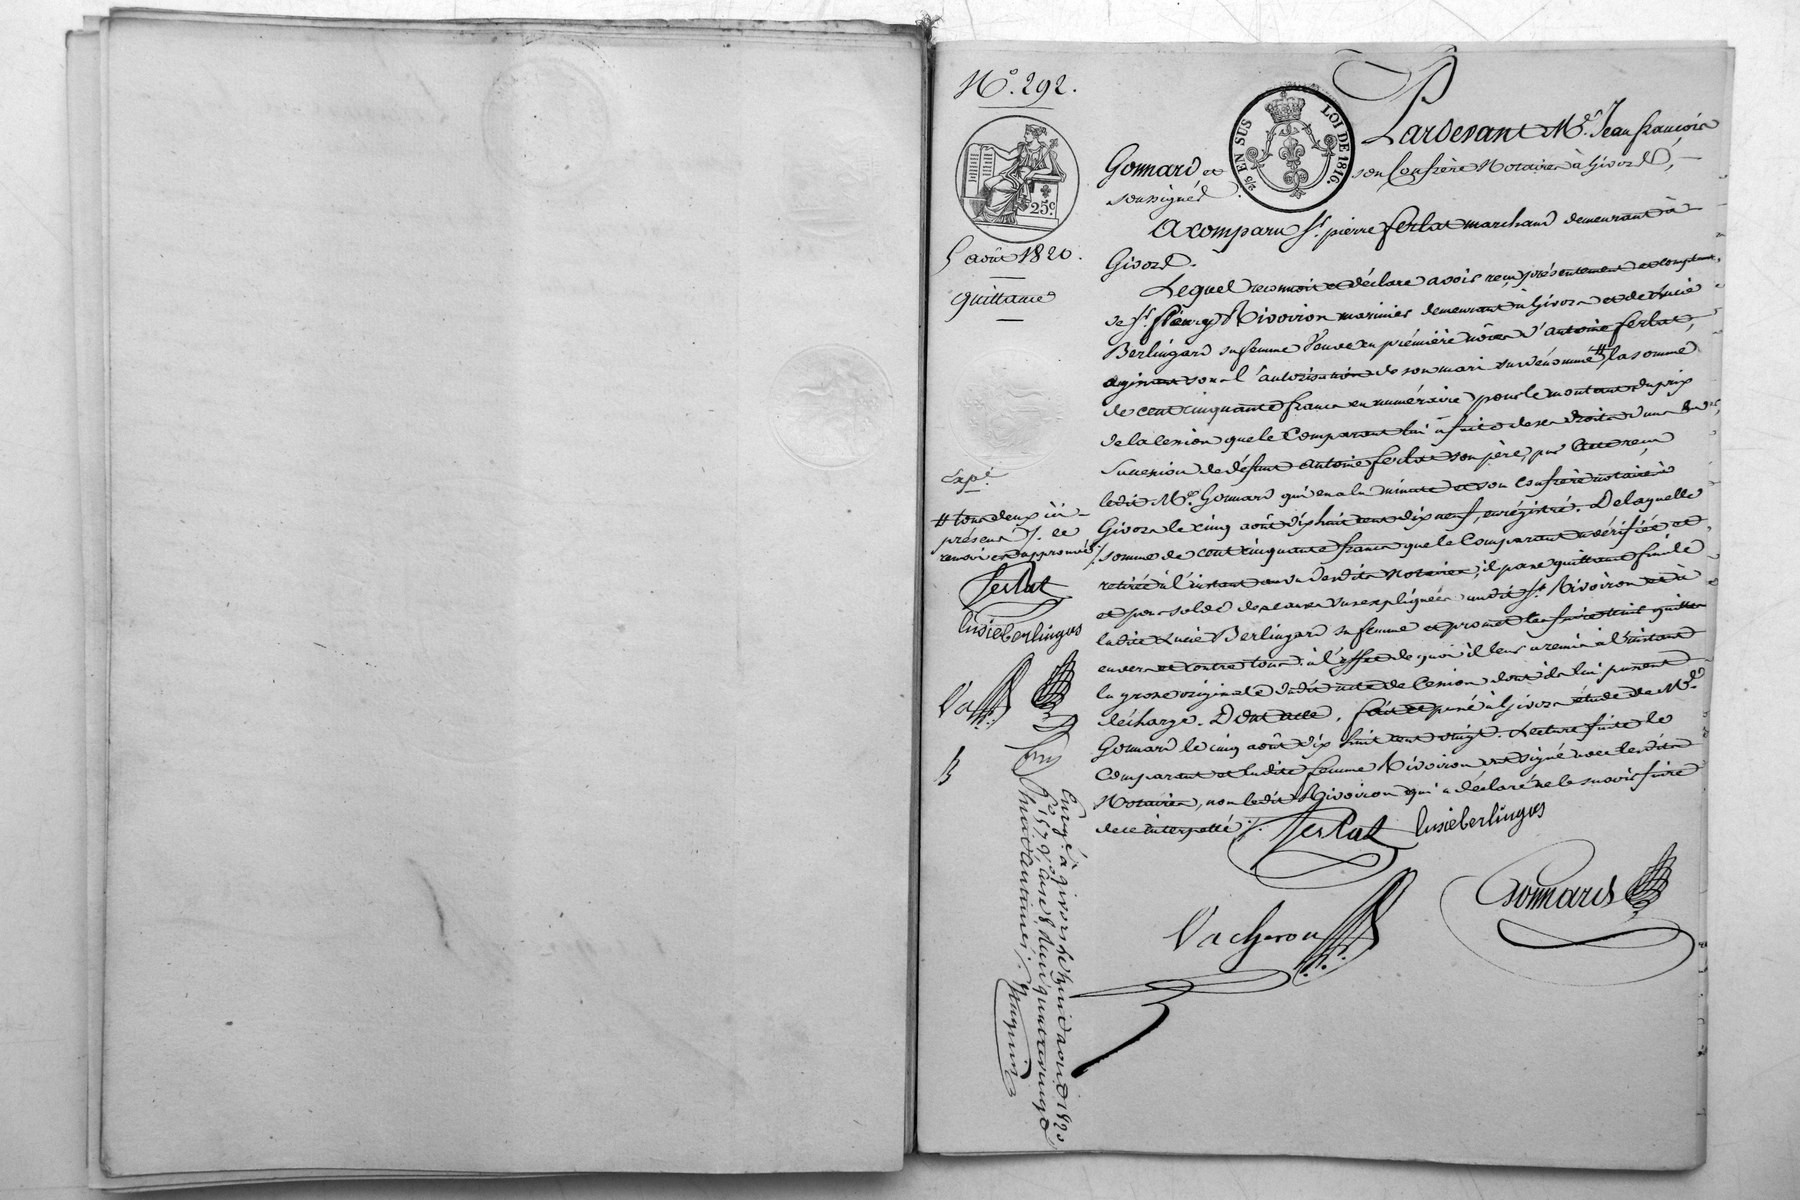 N.º 292.
25 c.
5 août 1820.
quittance
2/5 EN SUS LOI DE 1816.
Pardevant M.e Jean françois
Gonnard et son Confrère Notaires à Givors,
soussignés.
A comparu s.r pierre ferlat marchand demeurant à
Givors.
Lequel reconnoit et déclare avoir reçu présentement et comptant,
de s.r fleury Rivoiron marinier demeurant à Givors et de Lucie
Berlingard sa femme veuve en première nôces d'antoine ferlat,
agissant sous l'autorisation de son mari susdénommé #, la somme
de cent cinquante francs en numéraire, pour le montant du prix
de la cession que le Comparant lui a faite de ses droits dans la
succession de défunt antoine ferlat son père, par acte reçu
ledit M.e Gonnard qui en a la minute et son Confrère notaires à
Givors le cinq août dix huit cent dix neuf, enrégistré. De laquelle
somme de cent cinquante francs que le Comparant a vérifiée et
retirée à l'instant au vu desdits Notaires, il passe quittance finale
et pour solde des causes susexpliquées audit s.r Rivoiron et à
ladite Lucie Berlingard sa femme et promet les faire tenir quittes
envers et contre tous; à l'effet de quoi il leur a remis à l'instant
la grosse originale dudit acte de Cession dont ils lui passent
décharge. Dont acte. fait et passé à Givors étude de M.e
Gonnard le cinq août dix huit cent vingt. Lecture faite le
Comparant et ladite femme Rivoiron ont signé avec lesdits
Notaires, non ledit Rivoiron qui a déclaré ne le savoir faire
de ce interpellé ./.
ferlat lusieberlingas
Vacheron Gonnard
Exp.é
# tous deux ici
présens ./. ce
renvoi est approuvé ./.
ferlat
lusieberlingas
Va
Enrg.é à givors le huit aout 1820
f.o 157 v.o, case 8